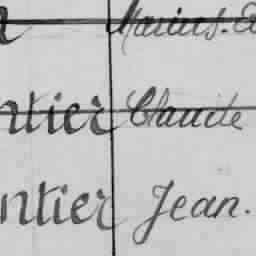 Marius.
ntier Claude
ntier Jean.